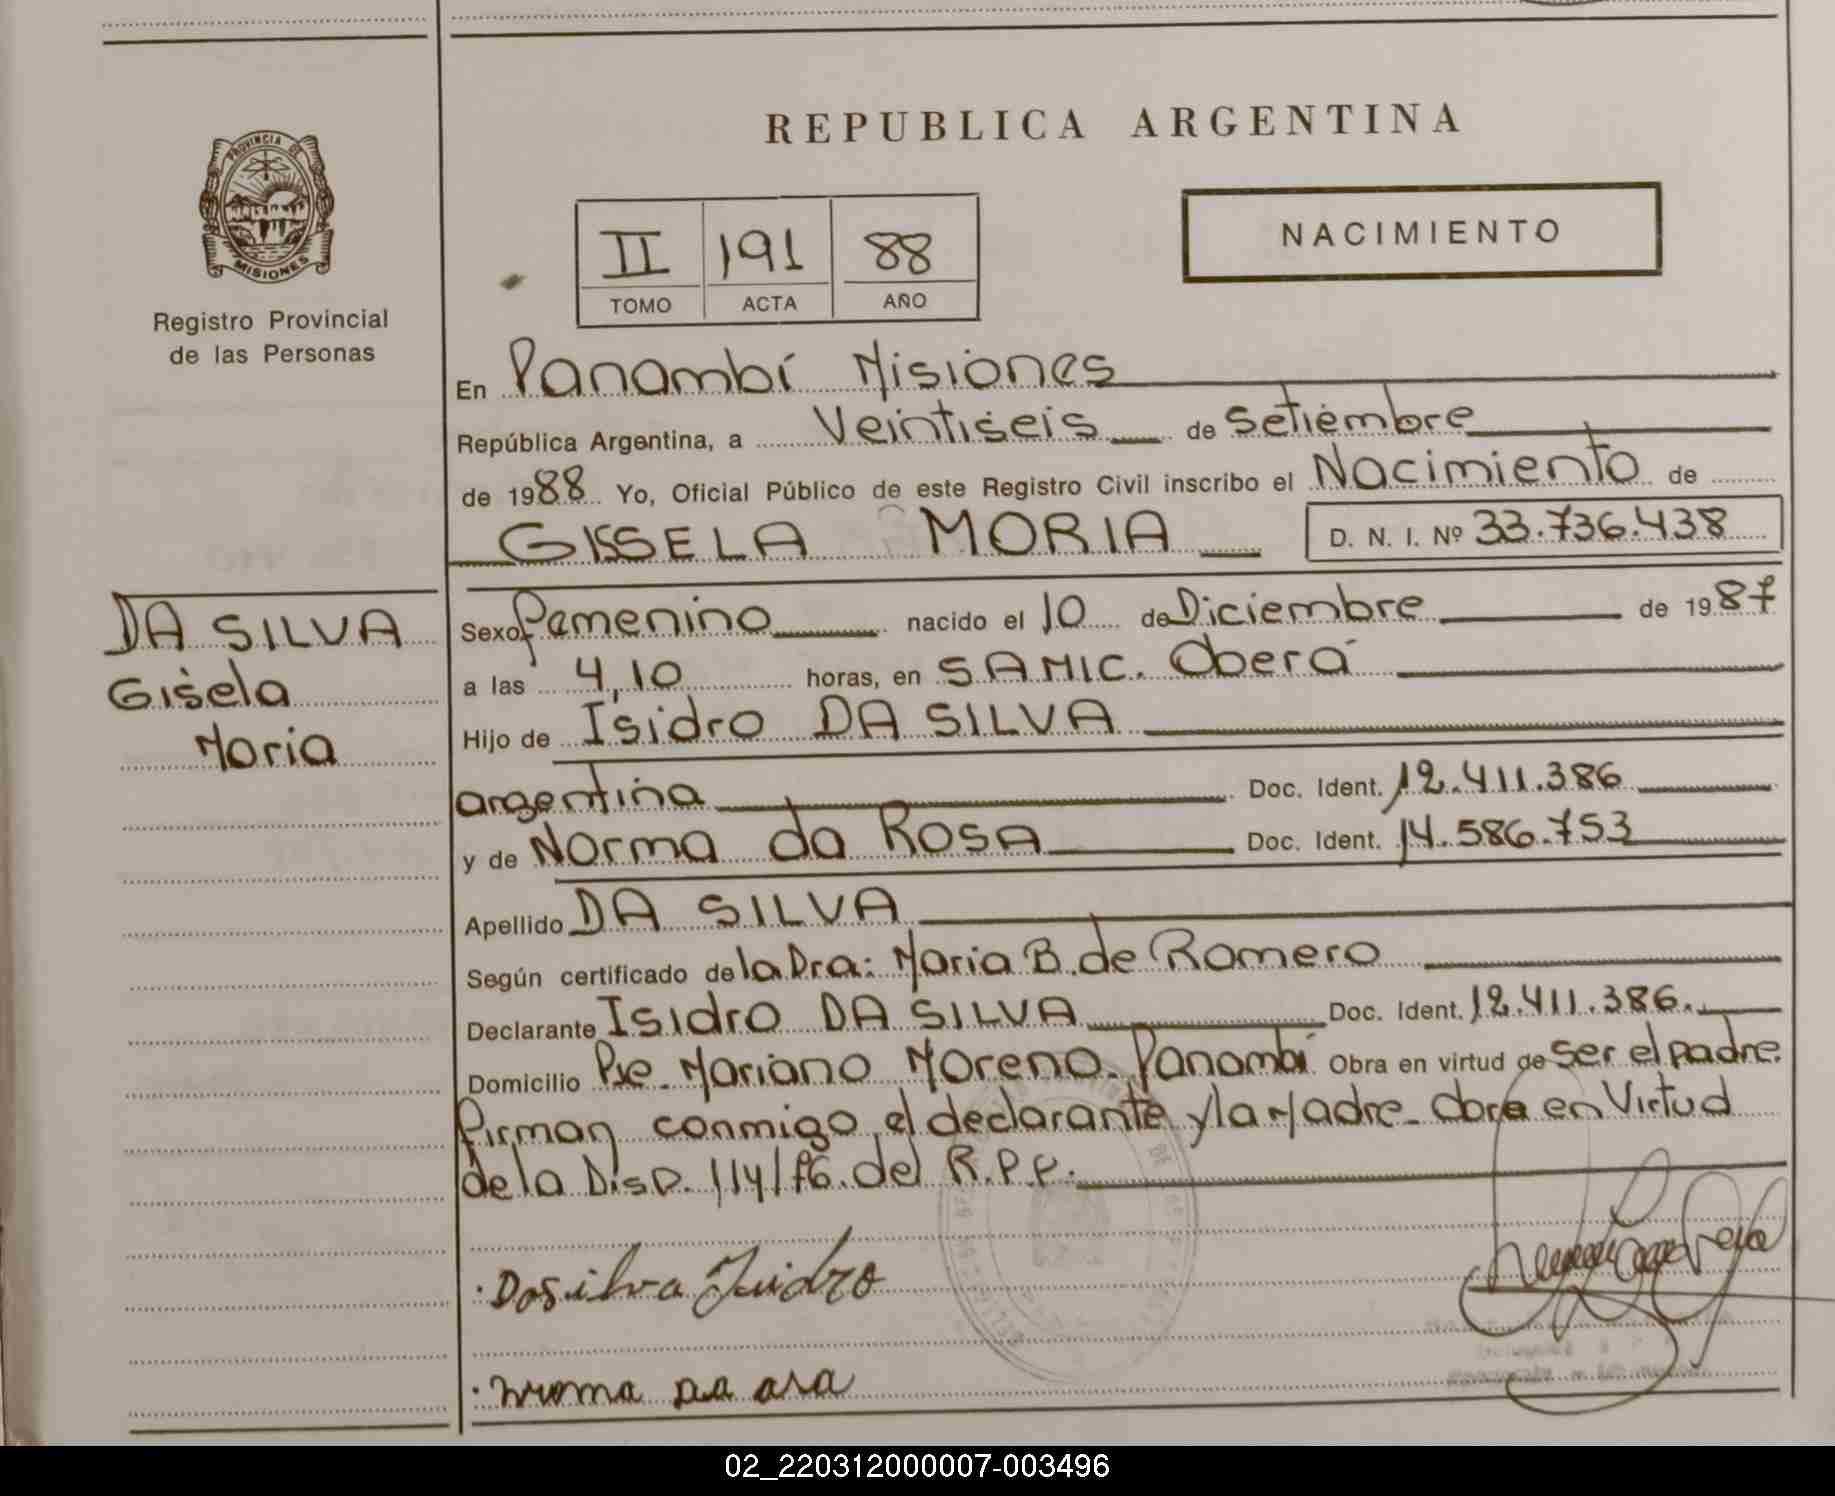 REPUBLICA ARGENTINA
PROVINCIA DE
MISIONES
Registro Provincial
de las Personas
II 191 88
TOMO ACTA AÑO
NACIMIENTO
En Panambí Misiones
República Argentina, a Veintiseis de Setiembre
de 1988 Yo, Oficial Público de este Registro Civil inscribo el Nacimiento de
GISSELA MORIA D. N. I. Nº 33.736.438
DA SILVA
Gisela
Moria
Sexo Femenino nacido el 10 de Diciembre de 1987
a las 4,10 horas, en SAMIC. Oberá
Hijo de Isidro DA SILVA
argentina Doc. Ident. 12.411.386
y de Norma da ROSA Doc. Ident. 14.586.753
Apellido DA SILVA
Según certificado de la Dra: Maria B. de Romero
Declarante Isidro DA SILVA Doc. Ident. 12.411.386.
Domicilio Pje. Mariano Moreno. Panambí Obra en virtud de ser el padre.
Firman conmigo el declarante y la Madre. Obra en Virtud
de la Disp. 114/76. del R.P.P.
Dasilva Isidro